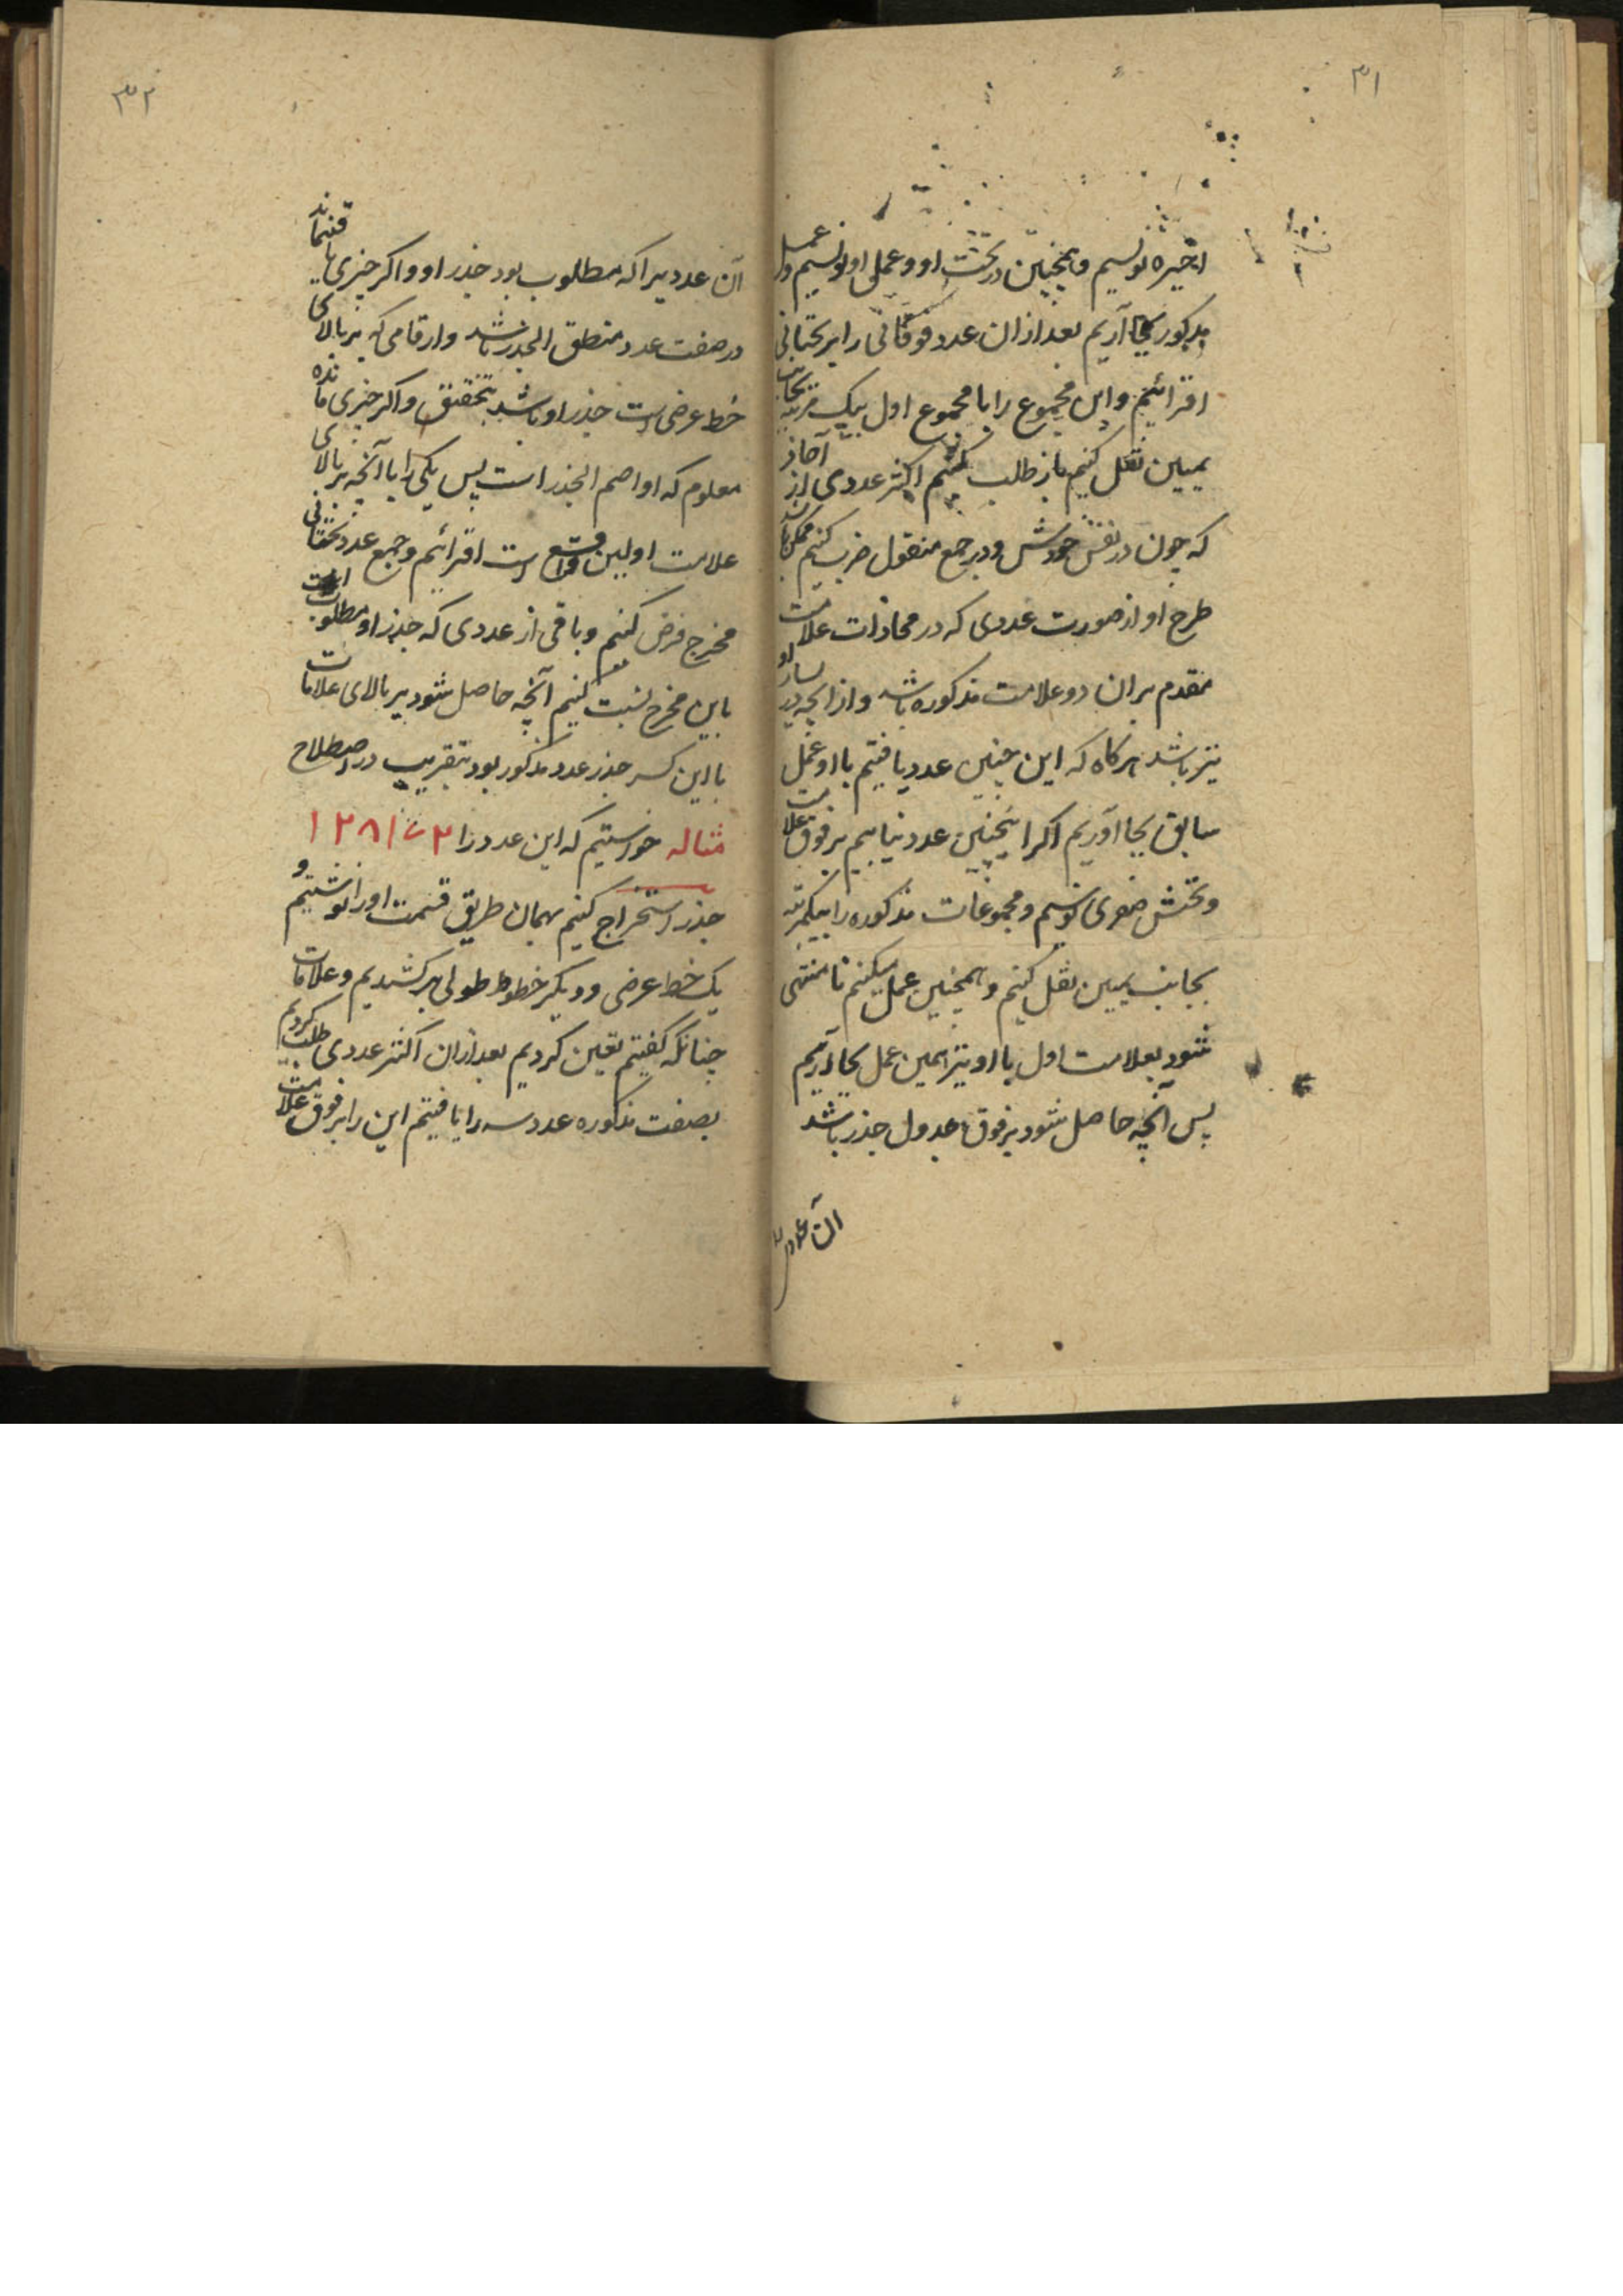 ۳۱
اخیره نویسیم و همچنین در تحت او و عملی او نویسیم و عمل
مذکور بجا آریم بعد از ان عدد فوقانی را بر تحتانی
افزائیم و این مجموع را با مجموع اول بیک مرتبه بجانب
یمین نقل کنیم باز طلب کنیم اکثر عددی از آحاد
که چون در نفس خودش و در جمع منقول ضرب کنیم ممکن باشد
طرح او از صورت عددی که در محاذات علامت
مقدم بران دو علامت مذکوره باشد و از انچه در یسار او
نیز باشد هرکاه که این چنین عدد یافتیم با او عمل
سابق بجا آوریم اکر اینچنین عدد نیابیم بر فوق علامت
و تحتش صفری نویسیم و مجموعات مذکوره را بیکمرتبه
بجانب یمین نقل کنیم و همچنین عمل میکنیم تا منتهی
شود بعلامت اول با او نیز همین عمل بجا آریم
پس آنچه حاصل شود بر فوق جدول جذر باشد
آن عدد
۳۲
آن عدد یرا که مطلوب بود جذر او و اکر چیزی باقی نماند
در صفت عدد منطق الجذر باشد و ارقامی که بر بالای
خط عرضی است جذر او باشد بتحقیق و اکر چیزی مانده
معلوم که او اصم الجذر است پس یکی را با آنچه بر بالای
علامت اولین واقع است افزائیم و جمع عدد تحتانی
مخرج فرض کنیم و باقی از عددی که جذر او مطلوب است
باین مخرج نسبت کنیم آنچه حاصل شود بر بالای علامات
با این کسر جذر عدد مذکور بود بتقریب در اصطلاح
مثاله خواستیم که این عدد را ۱۲۸۱۷۲
جذر استخراج کنیم بهمان طریق قسمت او را نوشتیم و
یک خط عرضی و دیکر خطوط طولی بر کشیدیم و علامات
چنانکه کفتیم تعین کردیم بعد ازان اکثر عددی طلب کردیم
بصفت مذکوره عدد سه را یافتیم این را بر فوق علامت